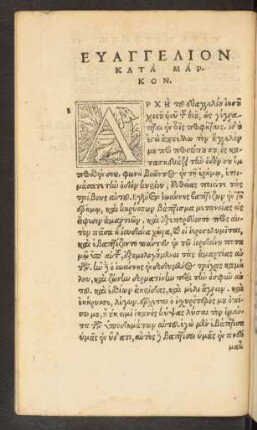 ΕΥΑΓΓΕΛΙΟΝ
ΚΑΤΑ ΜΑΡ-
ΚΟΝ.
ΑΡΧΗ τοῦ εὐαγγελίου ἰησοῦ
χριστοῦ υἱοῦ τοῦ θεοῦ, ὡς γέγρα-
πται ἐν τοῖς προφήταις, ἰδοὺ
ἐγὼ ἀποστέλλω τὸν ἄγγελόν
μου πρὸ προσώπου σου, ὃς κα-
τασκευάσει τὴν ὁδόν σου ἔμ-
προσθέν σου. φωνὴ βοῶντος ἐν τῇ ἐρήμῳ, ἑτοι-
μάσατε τὴν ὁδὸν κυρίου, εὐθείας ποιεῖτε τὰς
τρίβους αὐτοῦ. ἐγένετο ἰωάννης βαπτίζων ἐν τῇ
ἐρήμῳ, καὶ κηρύσσων βάπτισμα μετανοίας εἰς
ἄφεσιν ἁμαρτιῶν, καὶ ἐξεπορεύετο πρὸς αὐ-
τὸν πᾶσα ἡ ἰουδαία χώρα, καὶ οἱ ἱεροσολυμῖται,
καὶ ἐβαπτίζοντο πάντες ἐν τῷ ἰορδάνῃ ποτα-
μῷ ὑπ' αὐτοῦ, ἐξομολογούμενοι τὰς ἁμαρτίας αὐ-
τῶν. ἦν δὲ ὁ ἰωάννης ἐνδεδυμένος τρίχας καμή-
λου, καὶ ζώνην δερματίνην περὶ τὴν ὀσφὺν αὐ-
τοῦ, καὶ ἐσθίων ἀκρίδας, καὶ μέλι ἄγριον. καὶ
ἐκήρυσσε, λέγων. ἔρχεται ὁ ἰσχυρότερός μου ὀπί-
σω μου, οὗ οὐκ εἰμὶ ἱκανὸς κύψας λῦσαι τὸν ἱμάν-
τα τῶν ὑποδημάτων αὐτοῦ. ἐγὼ μὲν ἐβάπτισα
ὑμᾶς ἐν ὕδατι, αὐτὸς δὲ βαπτίσει ὑμᾶς ἐν πνεύ-
ματι